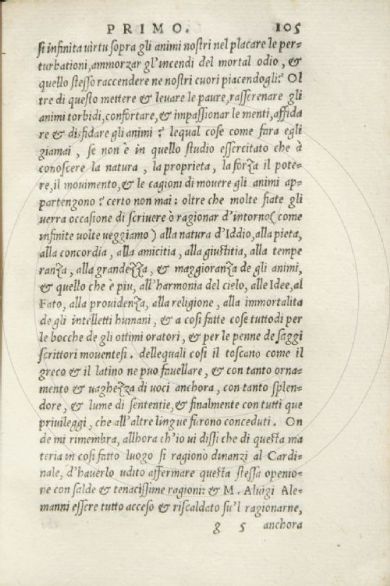 PRIMO. 105
si infinita uirtu sopra gli animi nostri nel placare le per-
turbationi, ammorzar gl'incendi del mortal odio, &
quello stesso raccendere ne nostri cuori piacendogli? Ol
tre di questo mettere & leuare le paure, rasserenare gli
animi torbidi, confortare, & impassionar le menti, affida
re & disfidare gli animi? lequal cose come fara egli
giamai, se non è in quello studio essercitato che à
conoscere la natura, la proprieta, la forza il pote-
re, il mouimento, & le cagioni di mouere gli animi ap-
partengono? certo non mai: oltre che molte fiate gli
uerra occasione di scriuere ò ragionar d'intorno (come
infinite uolte ueggiamo) alla natura d'Iddio, alla pieta,
alla concordia, alla amicitia, alla giustitia, alla tempe
ranza, alla grandezza, & maggioranza de gli animi,
& quello che è piu, all'harmonia del cielo, alle Idee, al
Fato, alla prouidenza, alla religione, alla immortalita
de gli intelletti humani, & a cosi fatte cose tuttodi per
le bocche de gli ottimi oratori, & per le penne de saggi
scrittori mouentesi. dellequali cosi il toscano come il
greco & il latino ne puo fauellare, & con tanto orna-
mento & uaghezza di uoci anchora, con tanto splen-
dore, & lume di sententie, & finalmente con tutti que
priuileggi, che all'altre lingue furono conceduti. On
de mi rimembra, allhora ch'io ui dissi che di questa ma
teria in cosi fatto luogo si ragionò dinanzi al Cardi-
nale, d'hauerlo udito affermare questa stessa openio-
ne con salde & tenacissime ragioni: & M. Aluigi Ale-
manni essere tutto acceso & riscaldato su'l ragionarne,
g 5 anchora